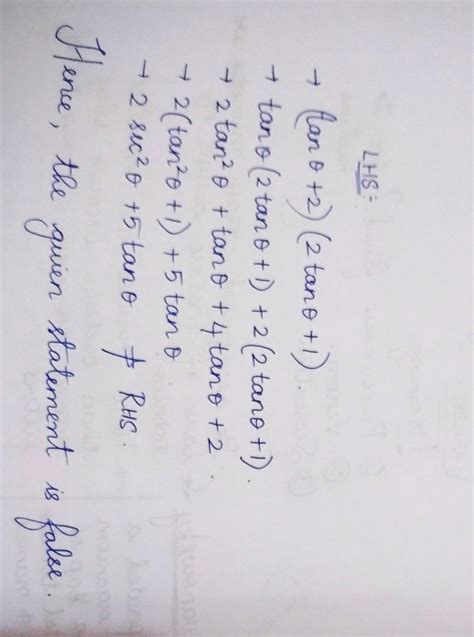 LHS:-
→ (tanθ+2)(2tanθ+1)
→ tanθ(2tanθ+1)+2(2tanθ+1).
→ 2tan²θ+tanθ+4tanθ+2.
→ 2(tan²θ+1)+5tanθ.
→ 2 sec²θ+5tanθ ≠ RHS.
Hence, the given statement is false.